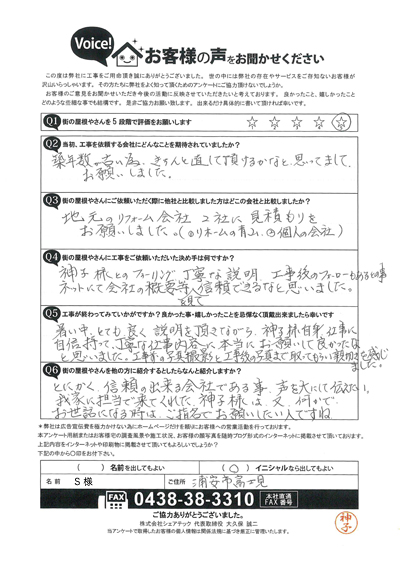 Voice!
お客様の声をお聞かせください
この度は弊社に工事をご用命頂き誠にありがとうございました。世の中には弊社の存在やサービスをご存知ないお客様が
沢山いらっしゃいます。その方たちに弊社をよく知って頂くためのアンケートにご協力頂けないでしょうか。
お客様のご意見をお聞かせいただき今後の活動に反映させていただきたいと考えております。良かったこと、嬉しかったこと
どのような些細な事でも結構です。是非ご協力お願い致します。出来るだけ具体的に書いて頂ければ幸いです。
Q1 街の屋根やさんを5段階で評価をお願いします
☆ ☆ ☆ ☆ ☆
Q2 当初、工事を依頼する会社にどんなことを期待されていましたか?
築年数が古い為、きちんと直して頂けるかなと、思ってまして、
お願いしました。
Q3 街の屋根やさんにご依頼いただく際に他社と比較しました方はどこの会社と比較しましたか?
地元のリフォーム会社 2社に見積もりを
お願いしました。(①リホームの青山、②個人の会社)
Q4 街の屋根やさんに工事をご依頼いただいた決め手は何ですか?
神子様とのフィーリング、丁寧な説明、工事後のフォローもある事
ネットにて会社の概要等を見て信頼できるなと思いました。
Q5 工事が終わってみていかがですか?良かった事・嬉しかったことを忌憚なく頂戴出来ましたら幸いです
暑い中、とても良く説明を頂きながら、神子様自身仕事に
自信持って、丁寧な仕事内容で本当にお願いして良かったな
と思いました。工事中の写真撮影と工事後の写真まで取ってもらい親切さを感じ
ました。
Q6 街の屋根やさんを他の方に紹介するとしたらなんと紹介しますか?
とにかく、信頼の出来る会社である事、声を大にして伝えたい。
我家に担当で来てくれた、神子様は、又、何かで
お世話になる時は、ご指名でお願いしたい人ですね
＊弊社は広告宣伝費を極力かけない為にホームページだけを頼りにお客様への営業活動を行っています。
本アンケート用紙またはお客様宅の調査風景や施工状況、お客様の顔写真を随時ブログ形式のインターネットに掲載させて頂いております。
上記内容をインターネットや印刷物に掲載させて頂いてもよろしいでしょうか?
下記の中から〇印をお付け下さい。
( )名前を出してもよい (〇)イニシャルなら出してもよい
名前 S様 ご住所 浦安市富士見
FAX 0438-38-3310 本社直通FAX番号
ご協力ありがとうございました。
株式会社シェアテック 代表取締役 大久保 誠二
当アンケートで取得したお客様の個人情報は関係法令に基づき厳正に管理いたします。
神子